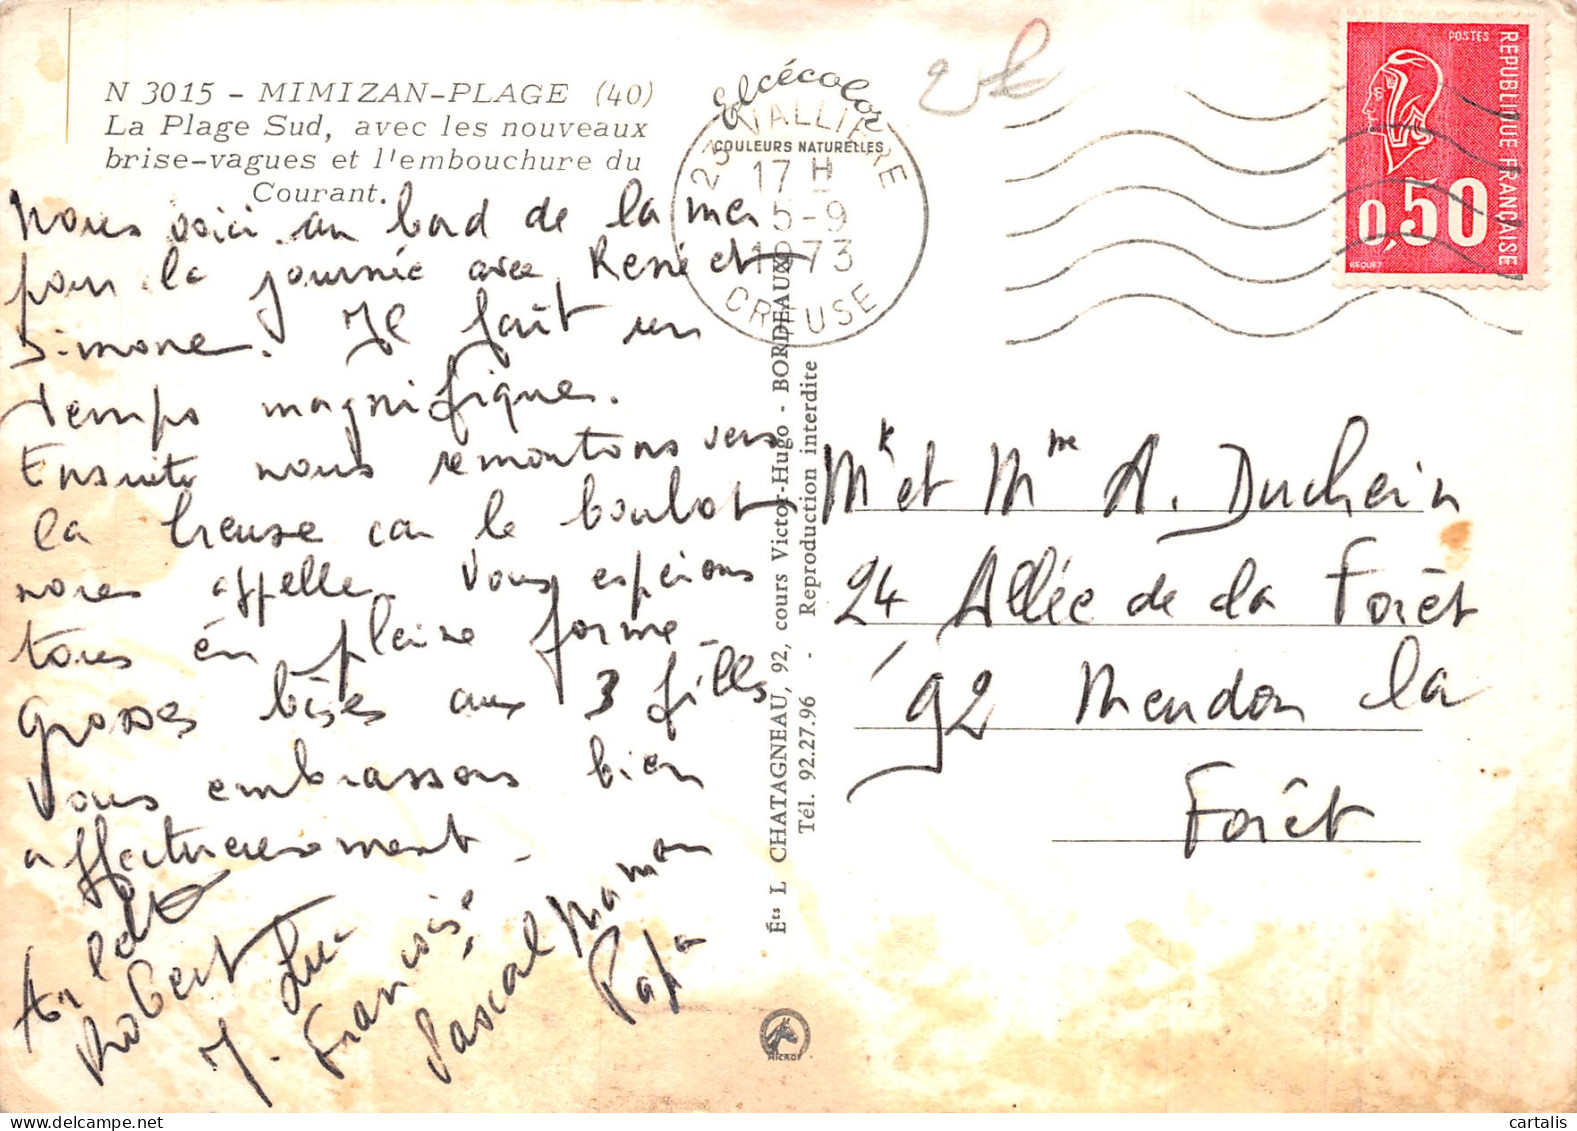 N 3015 - MIMIZAN-PLAGE (40)
La Plage Sud, avec les nouveaux
brise-vagues et l'embouchure du
Courant.
Nous voici au bord de la mer
pour la journée avec René et
Simone. Il fait un
temps magnifique.
Ensuite nous remontons vers
la Creuse car le boulot
nous appelle. Vous espérons
tous en pleine forme.
Grosses bises aux 3 filles
Vous embrassons bien
affectueusement.
Robert
J. Luc
Françoise
Pascal Maman
Papa
Elcécolor
COULEURS NATURELLES
23 VALLIERE
17 H
5-9
1973
CREUSE
Éts L. CHATAGNEAU, 92, cours Victor-Hugo - BORDEAUX
Tél. 92.27.96 - Reproduction interdite
MICROF
POSTES
REPUBLIQUE FRANÇAISE
0,50
BEQUET
Mr et Mme A. Duchein
24 Allée de la Forêt
92 Meudon la
Forêt
cartalis